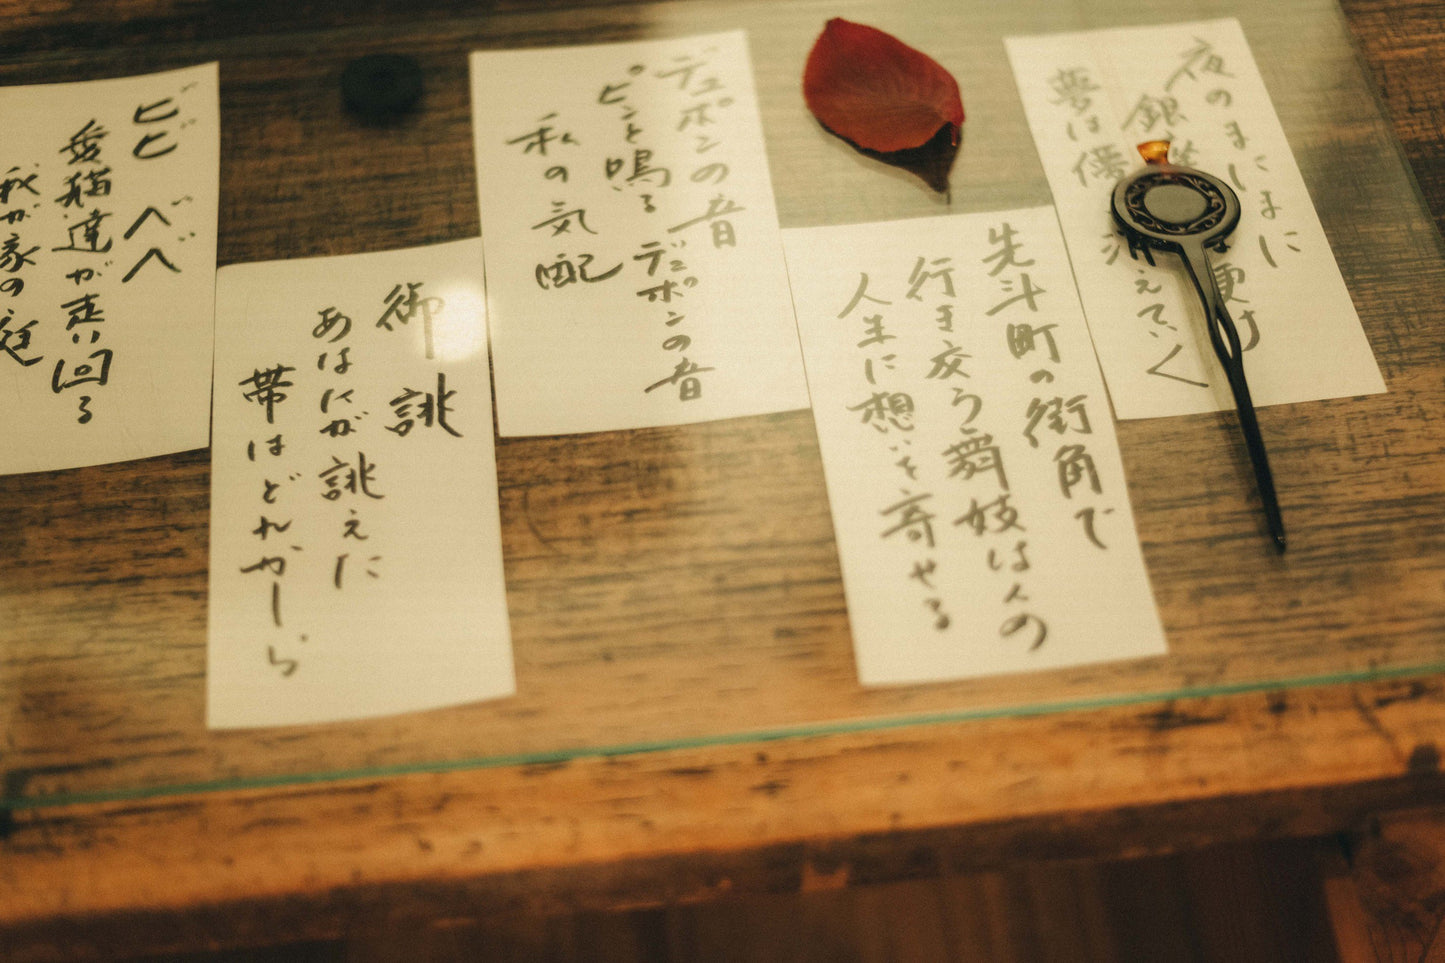 夜のまにまに
銀 更け
夢は儚 えていく
先斗町の街角で
行き交う舞妓は人の
人生に想いを寄せる
デュポンの音
ピンと鳴るデュポンの音
私の気配
御誂
誂えた
帯はどれかしら
ビビ ベベ
愛猫達が走り回る
我が家の庭